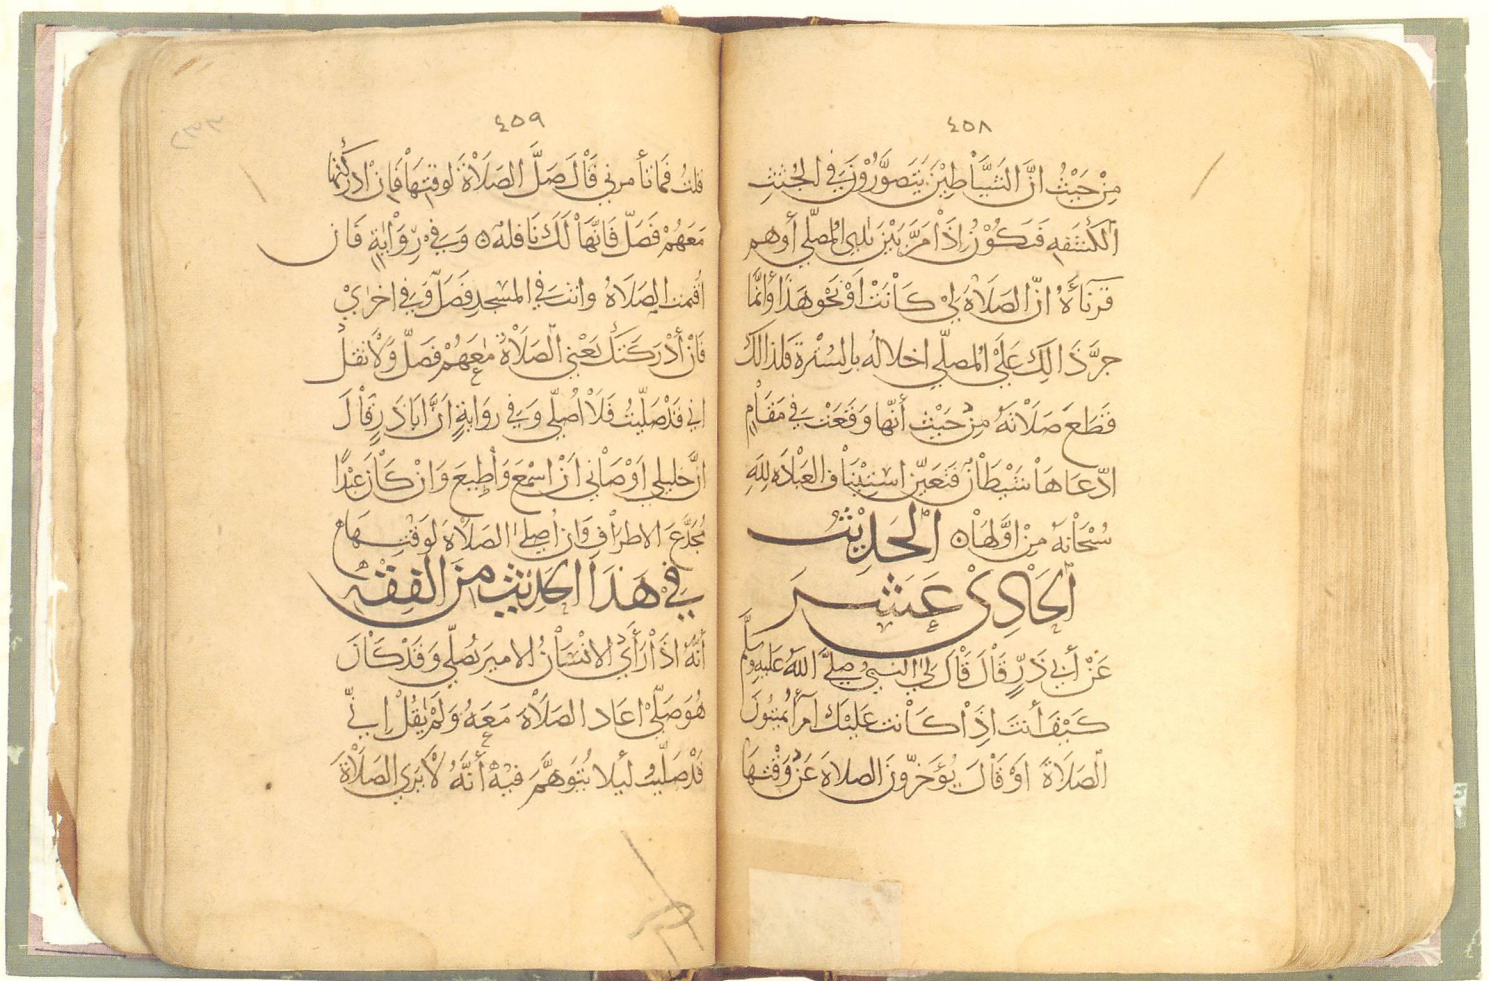 ٤٥٨
من حيث ان الشياطين يتصورون في الجثث
الكثيفه فيكون اذا مر بين يدي المصلي أوهم
قرناءه ان الصلاة لي كانت او نحو هذا وانما
جر ذالك على المصلي اخلاله بالسترة فلذالك
قطع صلاته من حيث أنها وقعت في مقام
ادعاها شيطان فتعين استيناف العباده لله
سبحانه من اولها ٥ الحديث
الحادي عشر
عن أبي ذر قال قال لي النبي صلى الله عليه وسلم
كيف أنت اذا كانت عليك أمرأ يميتون
الصلاة او قال يؤخرون الصلاة عن وقتها
٤٥٩
قلت فما تأمرني قال صل الصلاة لوقتها فان ادركتها
معهم فصل فانها لك نافله ٥ وفي رواية فان
اقيمت الصلاة وانت في المسجد فصل وفي اخرى
فان أدركتك يعني الصلاة معهم فصل ولا تقل
اني قد صليت فلا اصلي وفي رواية ان اباذر قال
ان خليلي اوصاني ان اسمع وأطيع وان كان عبدا
مجدع الاطراف وان اصلي الصلاة لوقتها
في هذا الحديث من الفقه
أنه اذا رأى الانسان الامير يصلي وقد كان
هو صلى اعاد الصلاة معه ولم يقل اني
قد صليت ليلا يتوهم فيه أنه لا يرى الصلاة